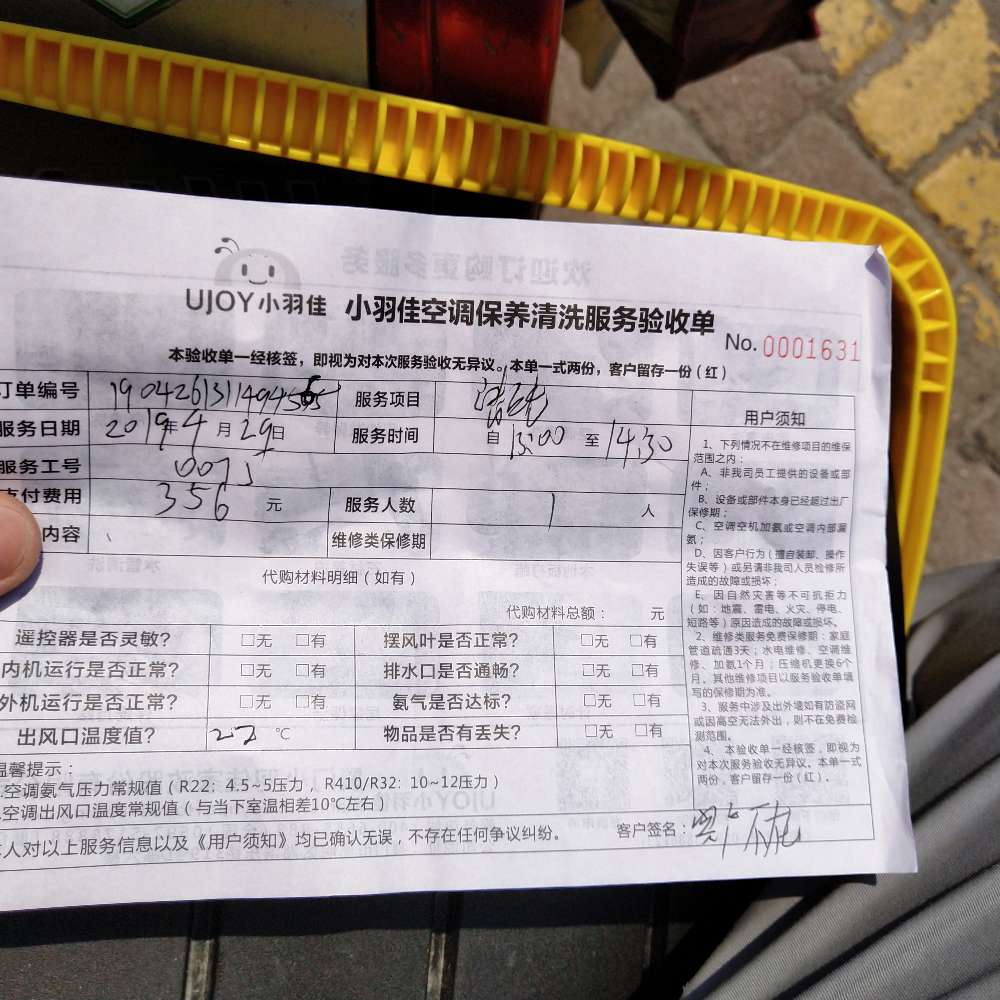 UJOY小羽佳 小羽佳空调保养清洗服务验收单
No. 0001631
本验收单一经核签，即视为对本次服务验收无异议。本单一式两份，客户留存一份（红）
订单编号 服务项目 清洗
服务日期 2019年4月29日 服务时间 自 13:00 至 14:30
服务工号
支付费用 356 元 服务人数 1 人
内容 维修类保修期
代购材料明细（如有）
代购材料总额： 元
遥控器是否灵敏？ □无 □有 摆风叶是否正常？ □无 □有
内机运行是否正常？ □无 □有 排水口是否通畅？ □无 □有
外机运行是否正常？ □无 □有 氨气是否达标？ □无 □有
出风口温度值？ 22 ℃ 物品是否有丢失？ □无 □有
温馨提示：
.空调氨气压力常规值（R22：4.5~5压力，R410/R32：10~12压力）
.空调出风口温度常规值（与当下室温相差10℃左右）
本人对以上服务信息以及《用户须知》均已确认无误，不存在任何争议纠纷。
客户签名：
用户须知
1、下列情况不在维修项目的维保
范围之内：
A、非我司员工提供的设备或部
件；
B、设备或部件本身已经超过出厂
保修期；
C、空调空机加氨或空调内部漏
氨；
D、因客户行为（擅自装卸、操作
失误等）或另请非我司人员检修所
造成的故障或损坏；
E、因自然灾害等不可抗拒力
（如：地震、雷电、火灾、停电、
短路等）原因造成的故障或损坏。
2、维修类服务免费保修期：家庭
管道疏通3天；水电维修、空调维
修、加氨1个月；压缩机更换6个
月。其他维修项目以服务验收单填
写的保修期为准。
3、服务中涉及出外墙如有防盗网
或因高空无法外出，则不在免费检
测范围。
4、本验收单一经核签，即视为
对本次服务验收无异议。本单一式
两份，客户留存一份（红）。